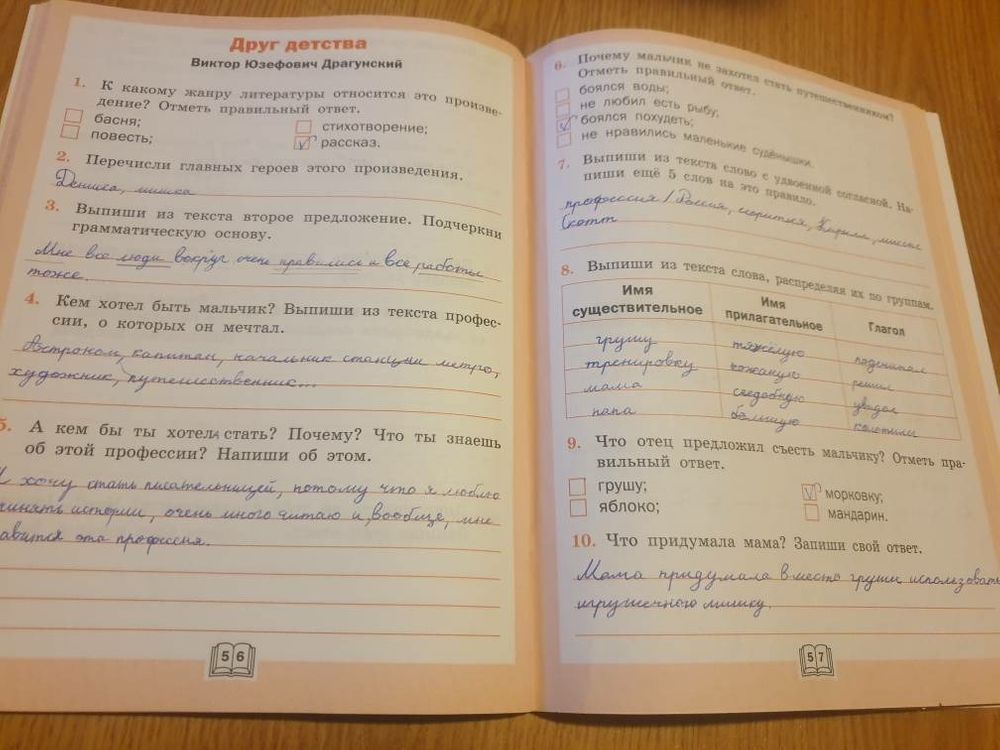 Друг детства
Виктор Юзефович Драгунский
1. К какому жанру литературы относится это произве-
дение? Отметь правильный ответ.
басня;
стихотворение;
повесть;
рассказ.
2. Перечисли главных героев этого произведения.
Дениска, мишка
3. Выпиши из текста второе предложение. Подчеркни
грамматическую основу.
Мне все люди вокруг очень нравились и все работы
тоже.
4. Кем хотел быть мальчик? Выпиши из текста профес-
сии, о которых он мечтал.
Астроном, капитан, начальник станции метро,
художник, путешественник...
5. А кем бы ты хотела стать? Почему? Что ты знаешь
об этой профессии? Напиши об этом.
Я хочу стать писательницей, потому что я люблю
очень много читаю и, вообще, мне
эта профессия.
56
6. Почему мальчик не захотел стать путешественником?
Отметь правильный ответ.
боялся воды;
не любил есть рыбу;
боялся похудеть;
не нравились маленькие судёнышки.
7. Выпиши из текста слово с удвоенной согласной. На-
пиши ещё 5 слов на это правило.
профессия / Россия, Кирилл,
8. Выпиши из текста слова, распределяя их по группам.
Имя существительное
Имя прилагательное
Глагол
грушу тяжёлую
тренировку кожаную решил
мама съедобную увидел
папа большую колотили
9. Что отец предложил съесть мальчику? Отметь пра-
вильный ответ.
грушу;
морковку;
яблоко;
мандарин.
10. Что придумала мама? Запиши свой ответ.
Мама придумала вместо груши использовать
игрушечного мишку.
57